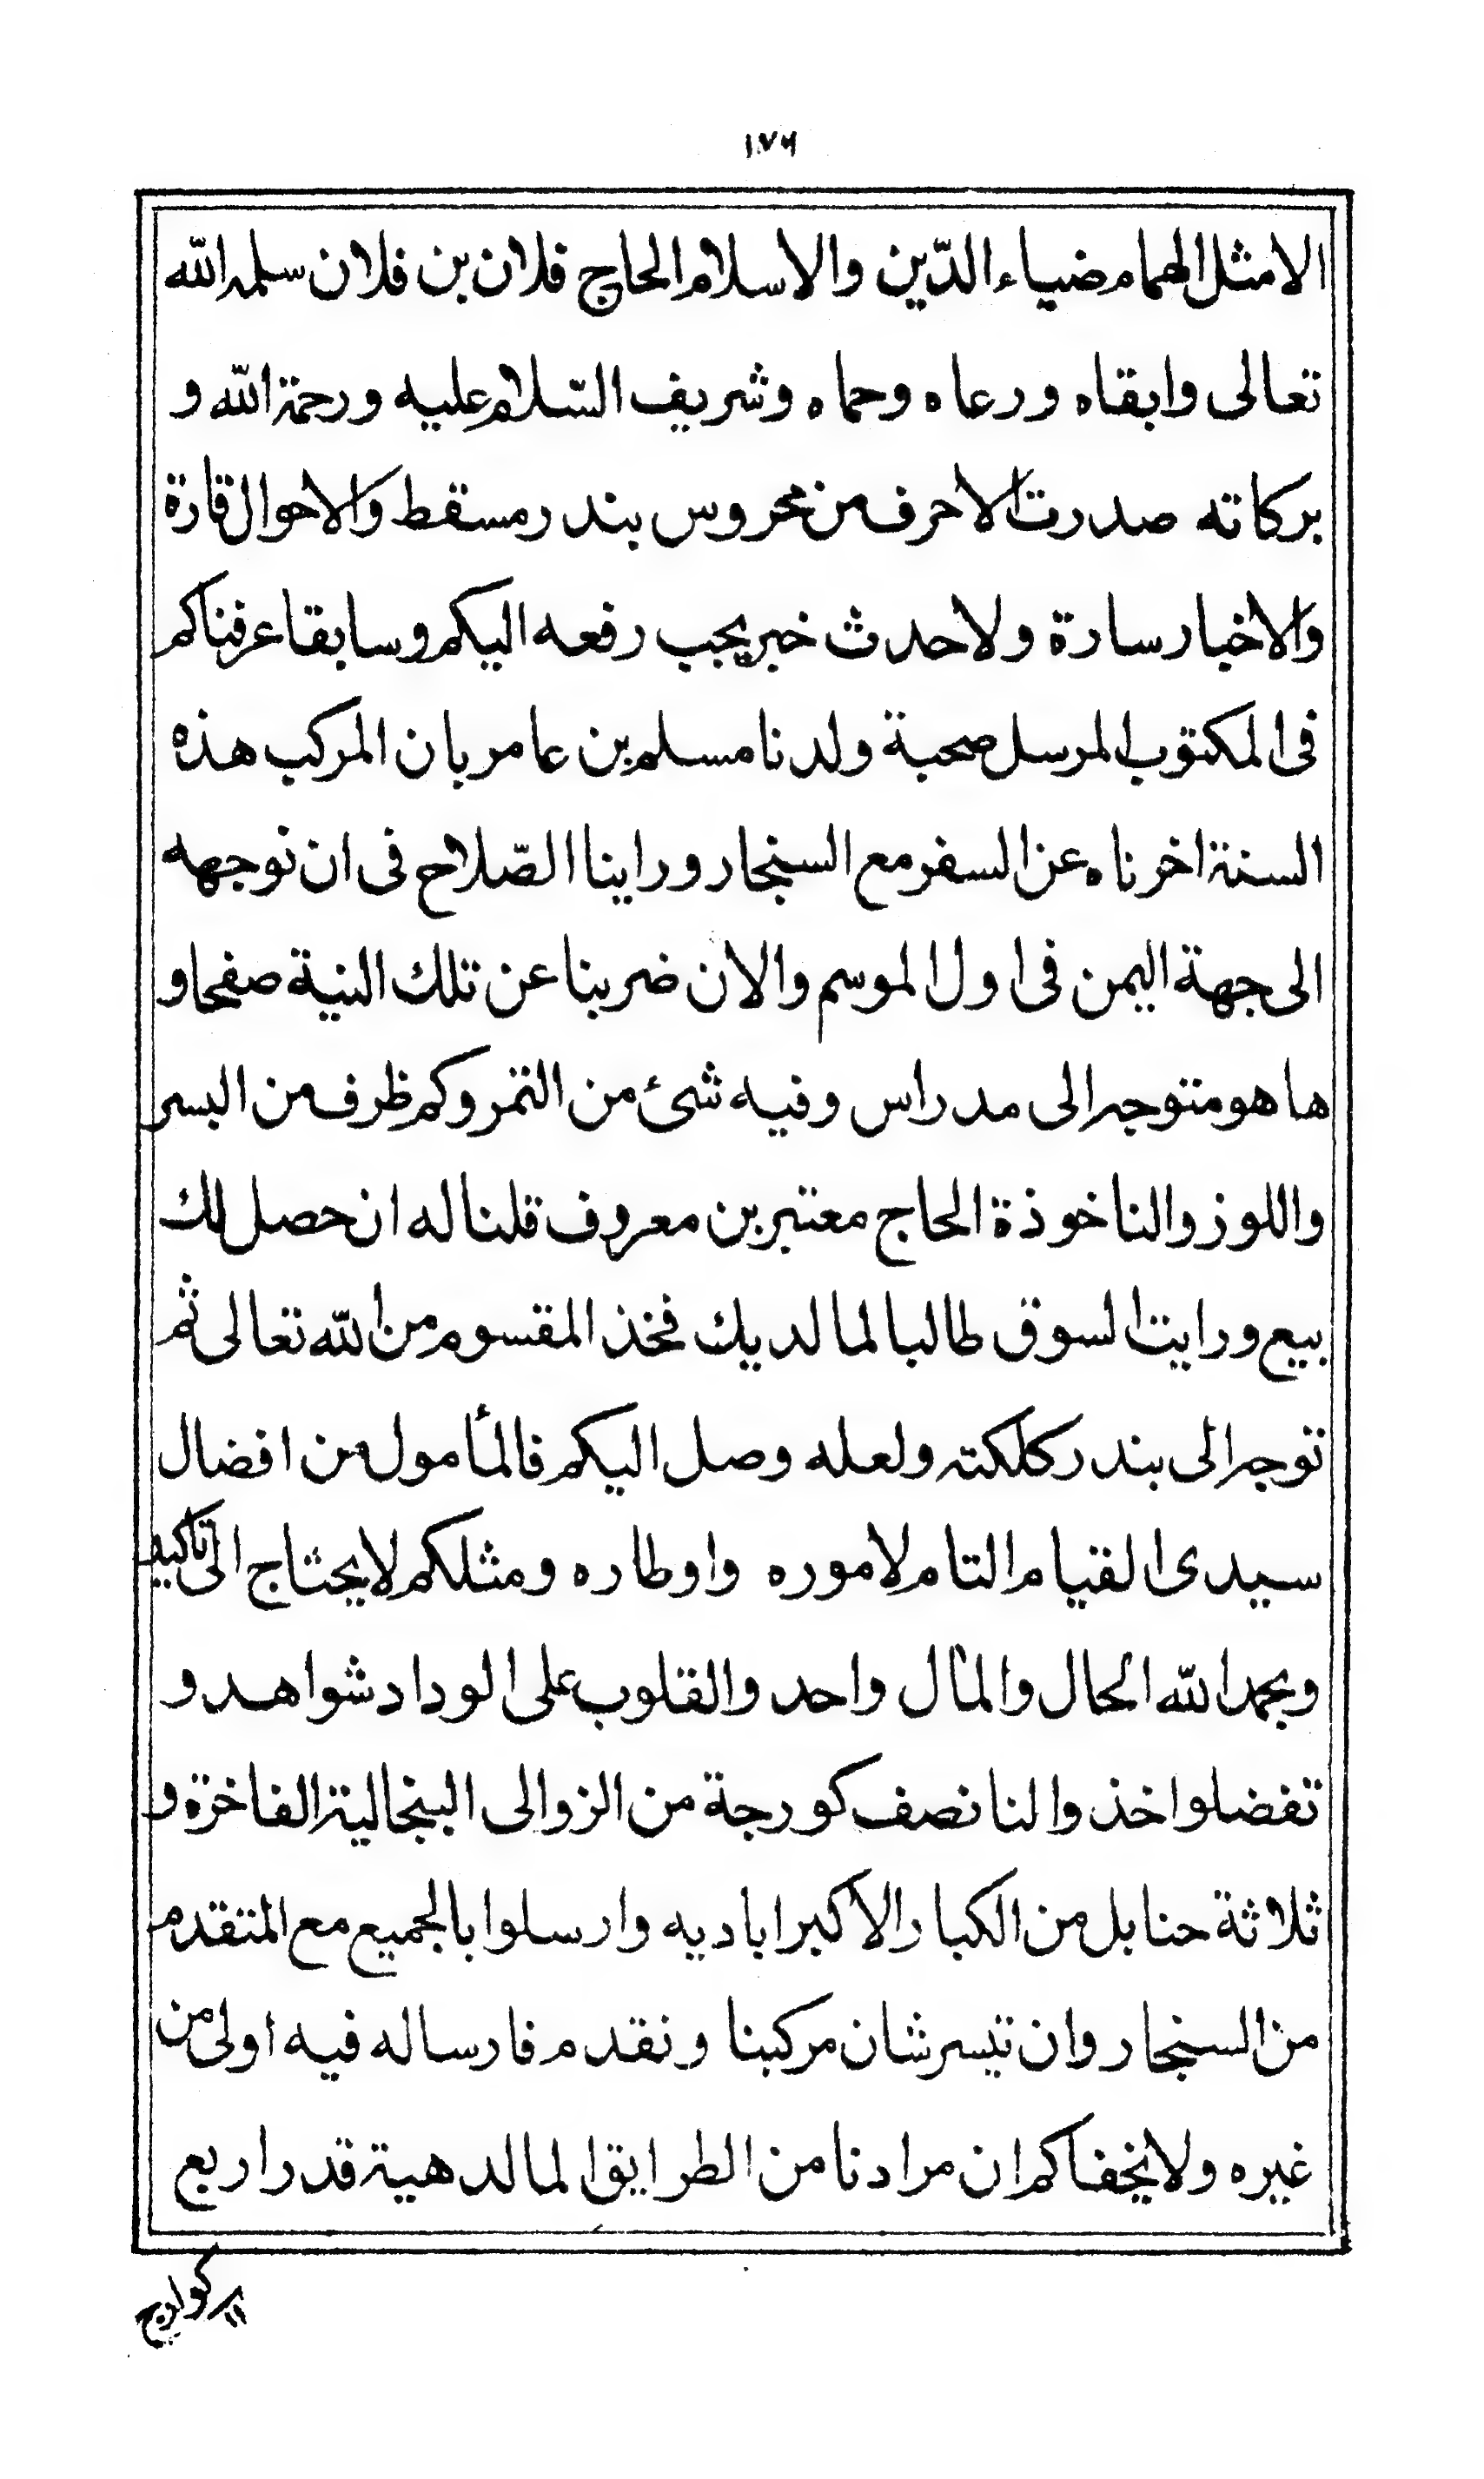 ١٧٦
الامثل الهمام ضياء الدّين والاسلام الحاج فلان بن فلان سلمه الله
تعالى وابقاه ورعاه وحماه وشريف السّلام عليه ورحمة الله و
بركاته صدرت الاحرف من محروس بندر مسقط والاحوال قارة
والاخبار سارة ولاحدث خبر يجب رفعه اليكم وسابقا عرفناكم
فى المكتوب المرسل صحبة ولدنا مسلم بن عامر بان المركب هذه
السنة اخرناه عن السفر مع السنجار وراينا الصّلاح فى ان نوجهه
الى جهة اليمن فى اول الموسم والان ضربنا عن تلك النية صفحا و
ها هو متوجه الى مدراس وفيه شئ من التمر وكم ظرف من البسر
واللوز والناخوذة الحاج معتبر بن معروف قلنا له ان حصل لك
بيع ورايت السوق طالبا لما لديك فخذ المقسوم من الله تعالى ثم
توجه الى بندر كلكته ولعله وصل اليكم فالمأمول من افضال
سيدى القيام التام لاموره واوطاره ومثلكم لا يحتاج الى تاكيد
وبحمد الله الحال والمال واحد والقلوب على الوداد شواهد و
تفضلوا خذوا لنا نصف كورجة من الزوالى البنجالية الفاخرة و
ثلاثة حنابل من الكبار الاكبراباديه وارسلوا بالجميع مع المتقدم
من السنجار وان تيسر شان مركبنا ونقدم فارساله فيه أولى من
غيره ولا يخفاكم ان مرادنا من الطرايق المالدهية قدر اربع
كوارج